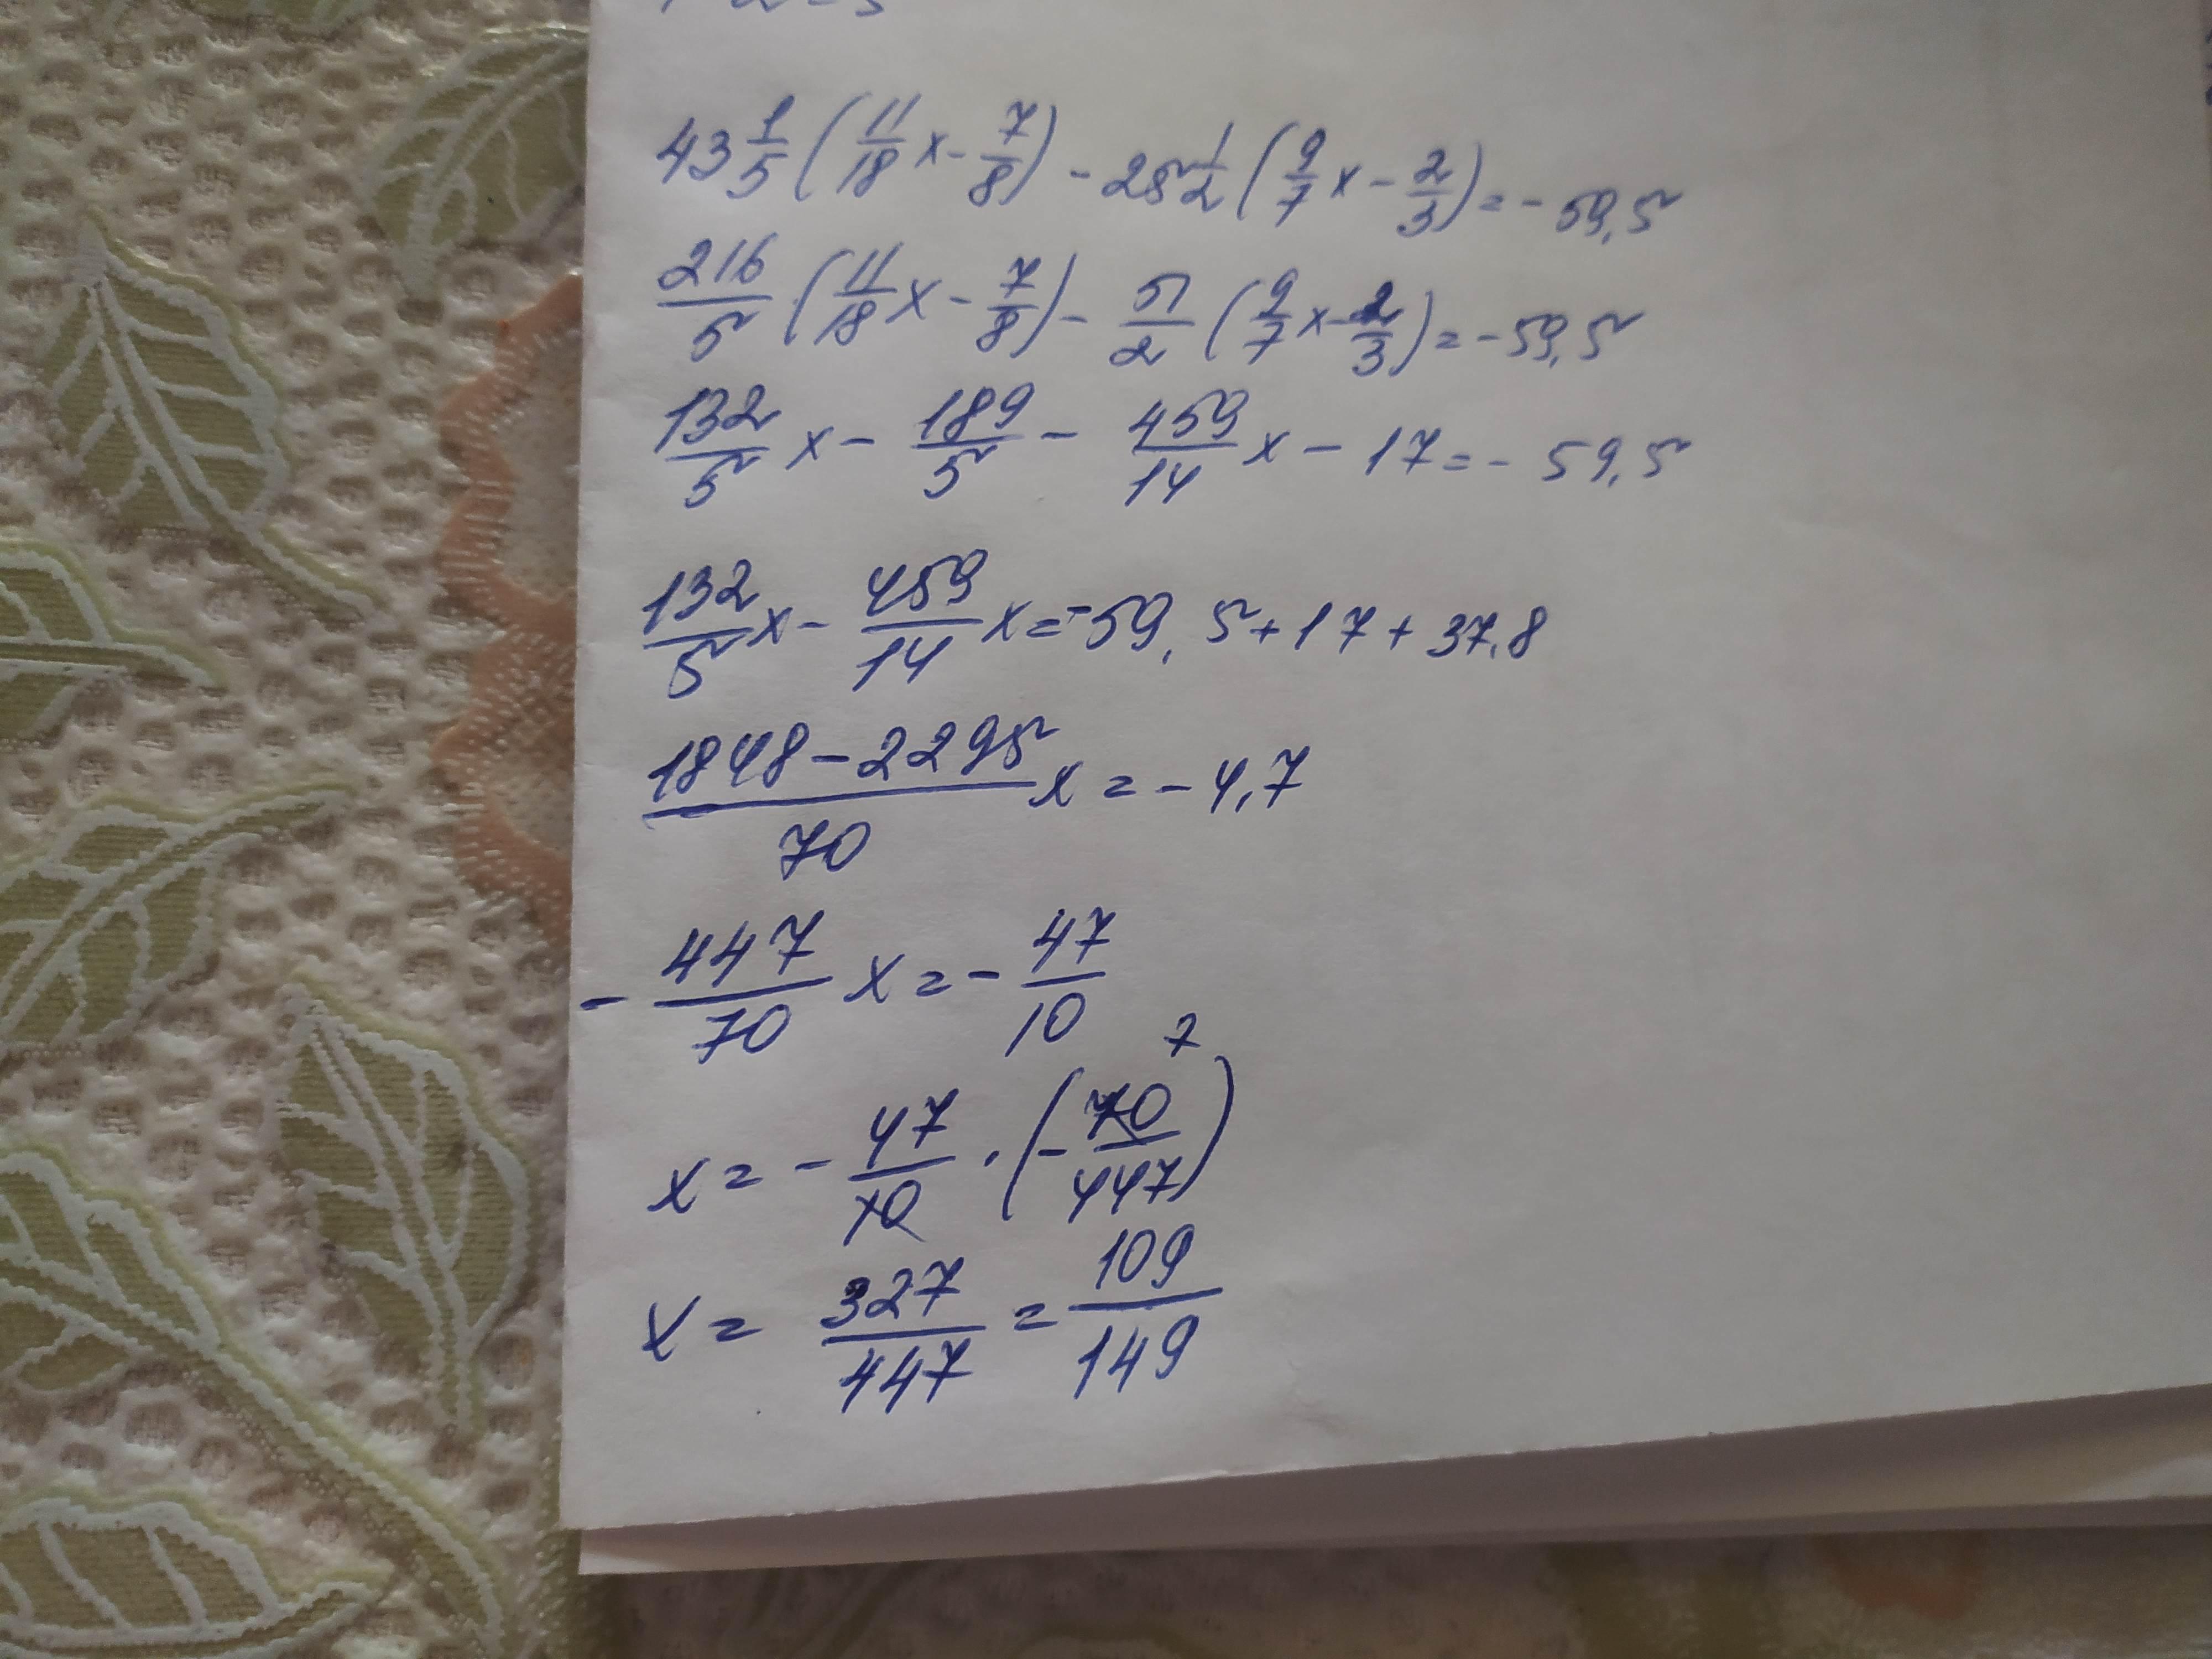 43 1/5 (11/18 x - 7/8) - 25 1/2 (9/7 x - 2/3) = - 59,5
216/5 (11/18 x - 7/8) - 51/2 (9/7 x - 2/3) = - 59,5
132/5 x - 189/5 - 459/14 x - 17 = - 59,5
132/5 x - 459/14 x = - 59,5 + 17 + 37,8
(1848 - 2295)/70 x = - 4,7
- 447/70 x = - 47/10
7
x = - 47/10 · (- 70/447)
x = 327/447 = 109/149